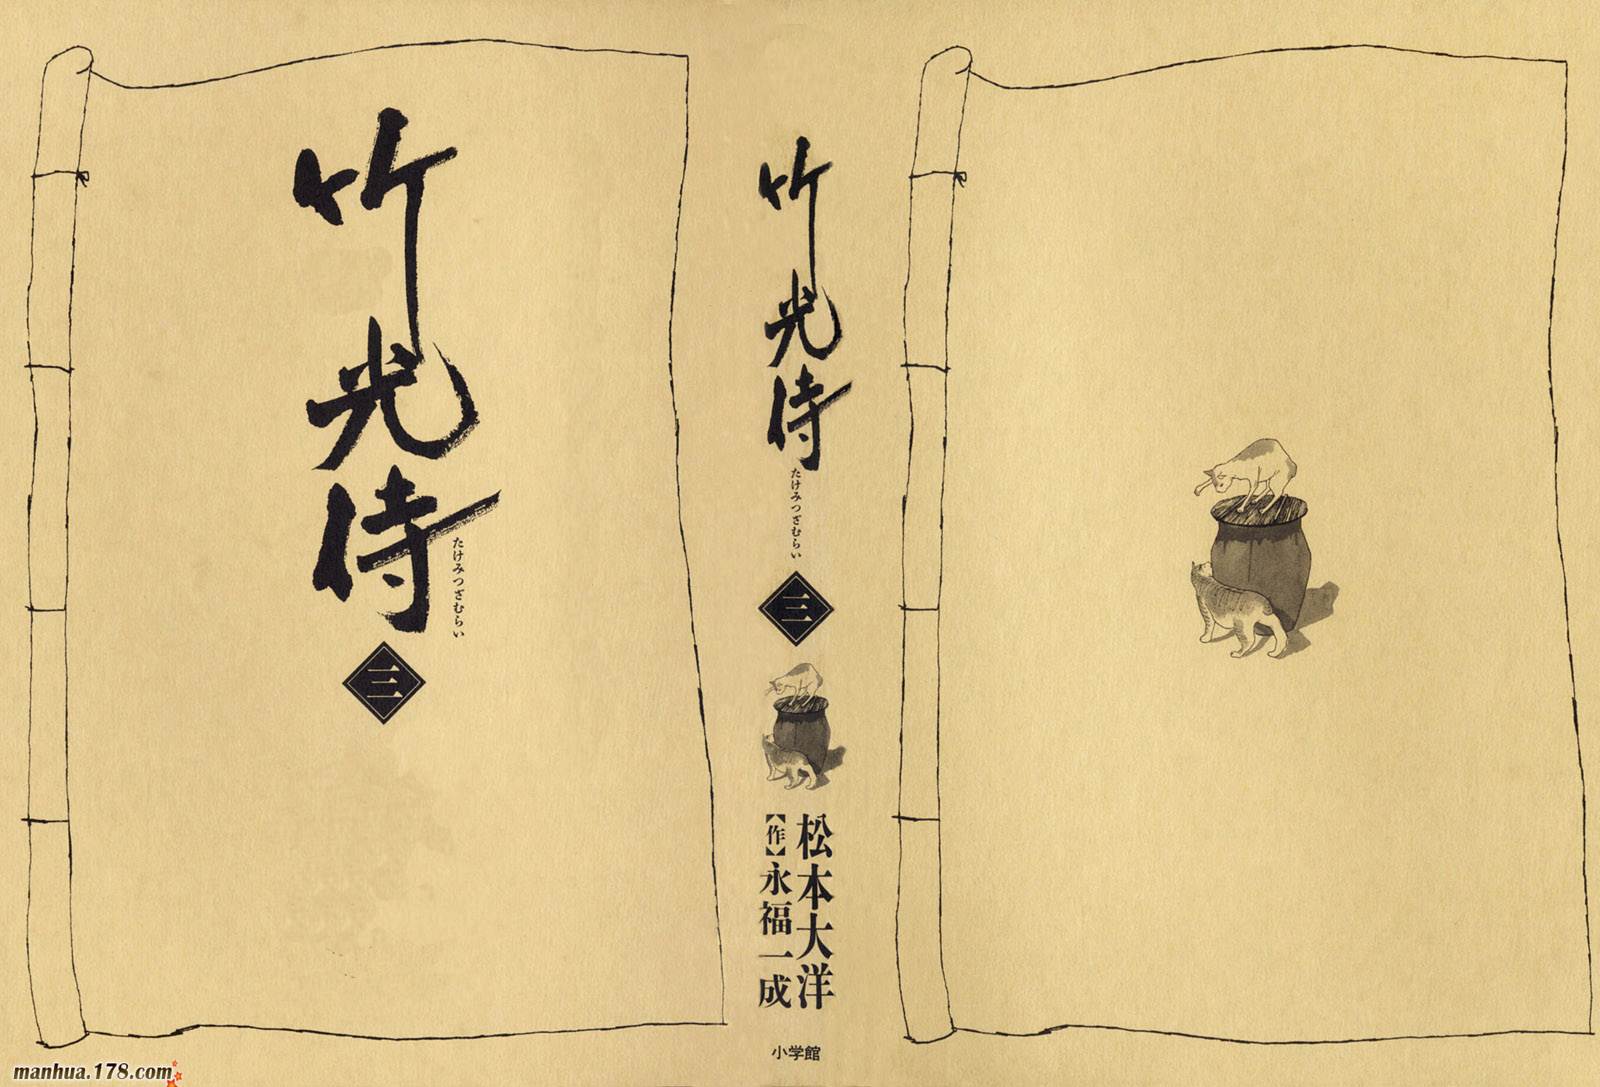 竹光侍
たけみつざむらい
三
竹光侍
たけみつざむらい
三
松本大洋
【作】永福一成
小学館
manhua.178.com